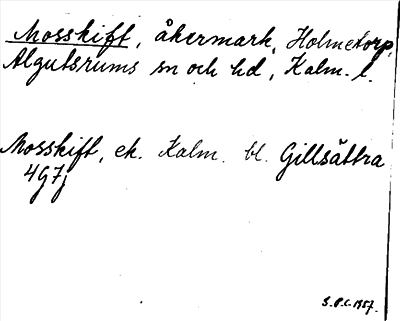 Mosskift, åkermark, Holmetorp,
Algutsrums sn och hd, Kalm. l.
Mosskift, ek. Kalm. bl. Gillsättra
4g7j
S.P.C. 1957.